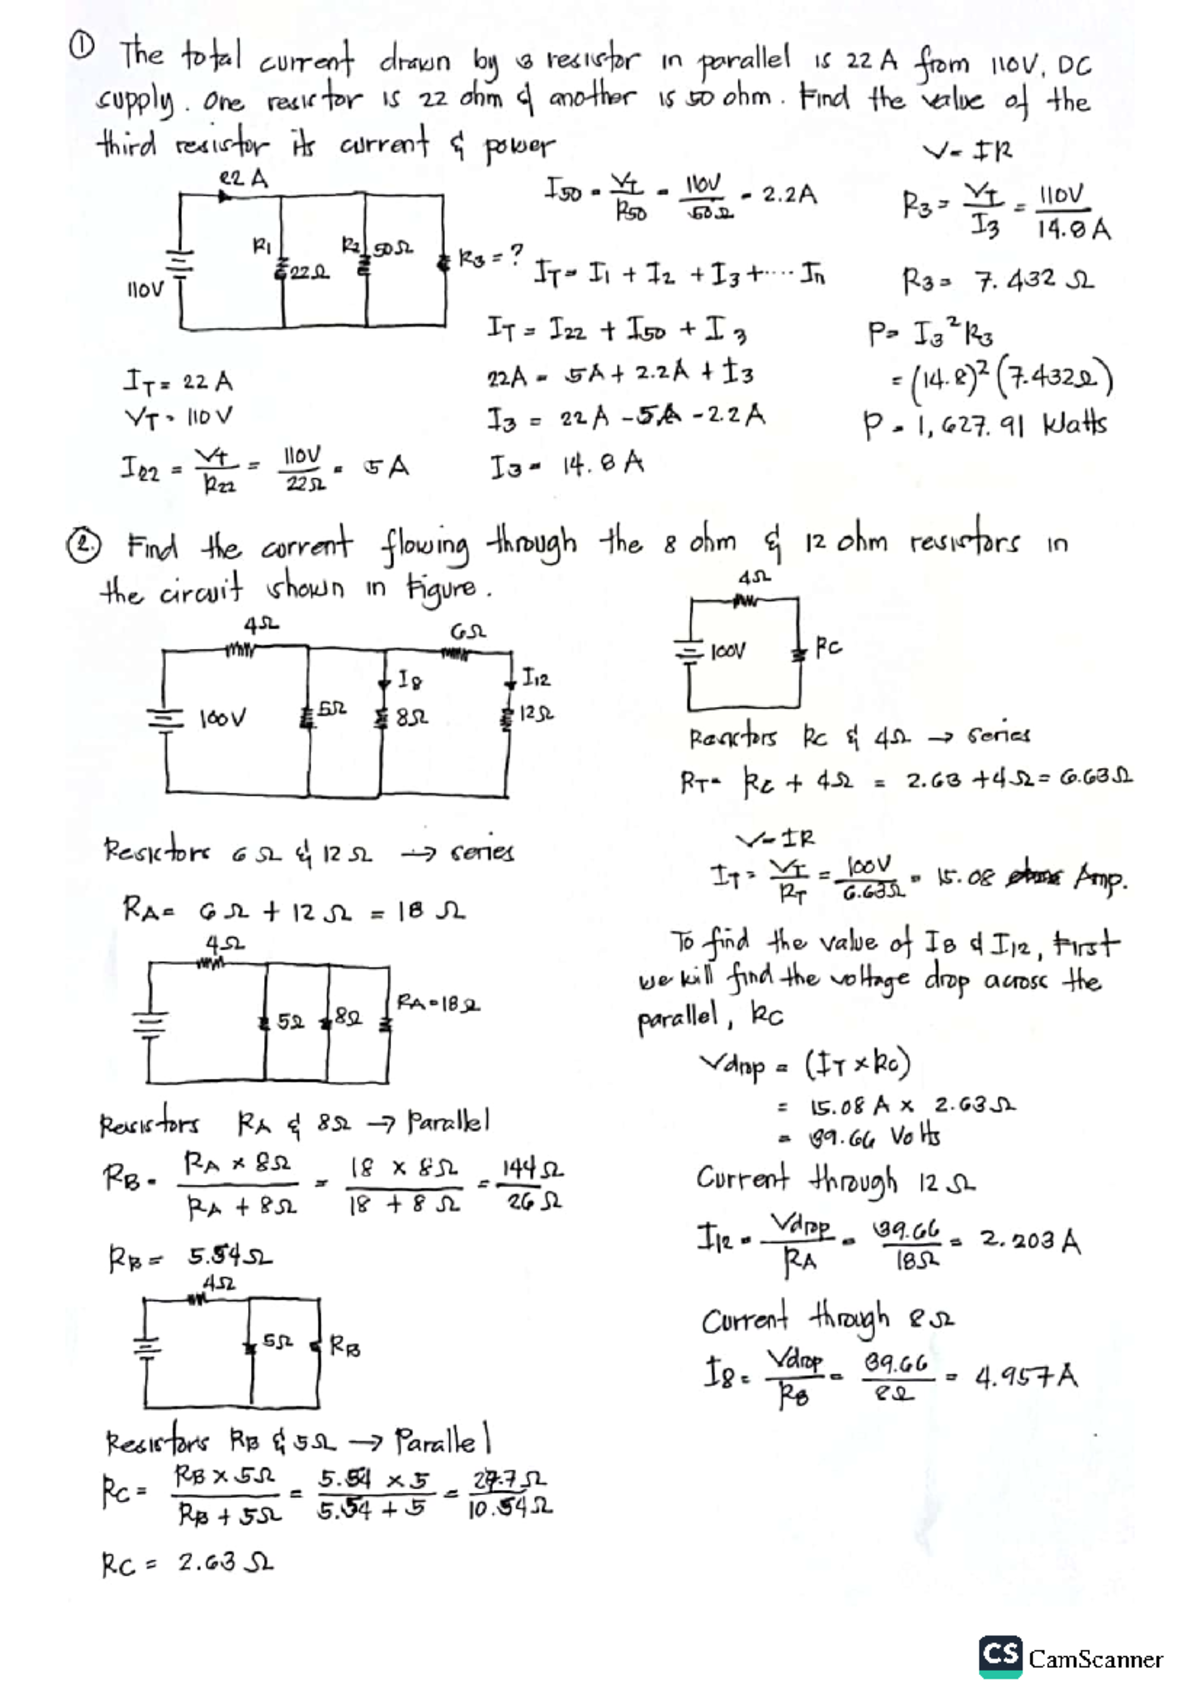 ① The total current drawn by 3 resistor in parallel is 22 A from 110V, DC
supply. One resistor is 22 ohm & another is 50 ohm. Find the value of the
third resistor its current & power
22 A
110V
R1
22Ω
R2
50Ω
R3 = ?
IT = 22 A
VT = 110 V
I22 = Vt/R22 = 110V/22Ω = 5 A
I50 = VT/R50 = 110V/50Ω = 2.2A
IT = I1 + I2 + I3 + .... In
IT = I22 + I50 + I3
22A = 5A + 2.2A + I3
I3 = 22 A - 5A - 2.2 A
I3 = 14.8 A
V = IR
R3 = VT/I3 = 110V/14.8 A
R3 = 7.432 Ω
P = I3²R3
= (14.8)² (7.432Ω)
P = 1,627.91 Watts
②. Find the current flowing through the 8 ohm & 12 ohm resistors in
the circuit shown in Figure.
4Ω
6Ω
100V
5Ω
I8
8Ω
I12
12Ω
Resistors 6Ω & 12Ω → series
RA = 6Ω + 12Ω = 18 Ω
4Ω
5Ω
8Ω
RA = 18Ω
Resistors RA & 8Ω → Parallel
RB = RA x 8Ω/RA + 8Ω = 18 x 8Ω/18 + 8Ω = 144Ω/26Ω
RB = 5.54Ω
4Ω
5Ω
RB
Resistors RB & 5Ω → Parallel
RC = RB x 5Ω/RB + 5Ω = 5.54 x 5/5.54 + 5 = 27.7Ω/10.54Ω
RC = 2.63 Ω
4Ω
100V
RC
Resistors RC & 4Ω → series
RT = RC + 4Ω = 2.63 + 4Ω = 6.63Ω
V = IR
IT = VT/RT = 100V/6.63Ω = 15.08 Amp.
To find the value of I8 & I12, First
we will find the voltage drop across the
parallel, RC
Vdrop = (IT x RC)
= 15.08 A x 2.63Ω
= 39.66 Volts
Current through 12 Ω
I12 = Vdrop/RA = 39.66/18Ω = 2.203 A
Current through 8Ω
I8 = Vdrop/R8 = 39.66/8Ω = 4.957 A
CS CamScanner